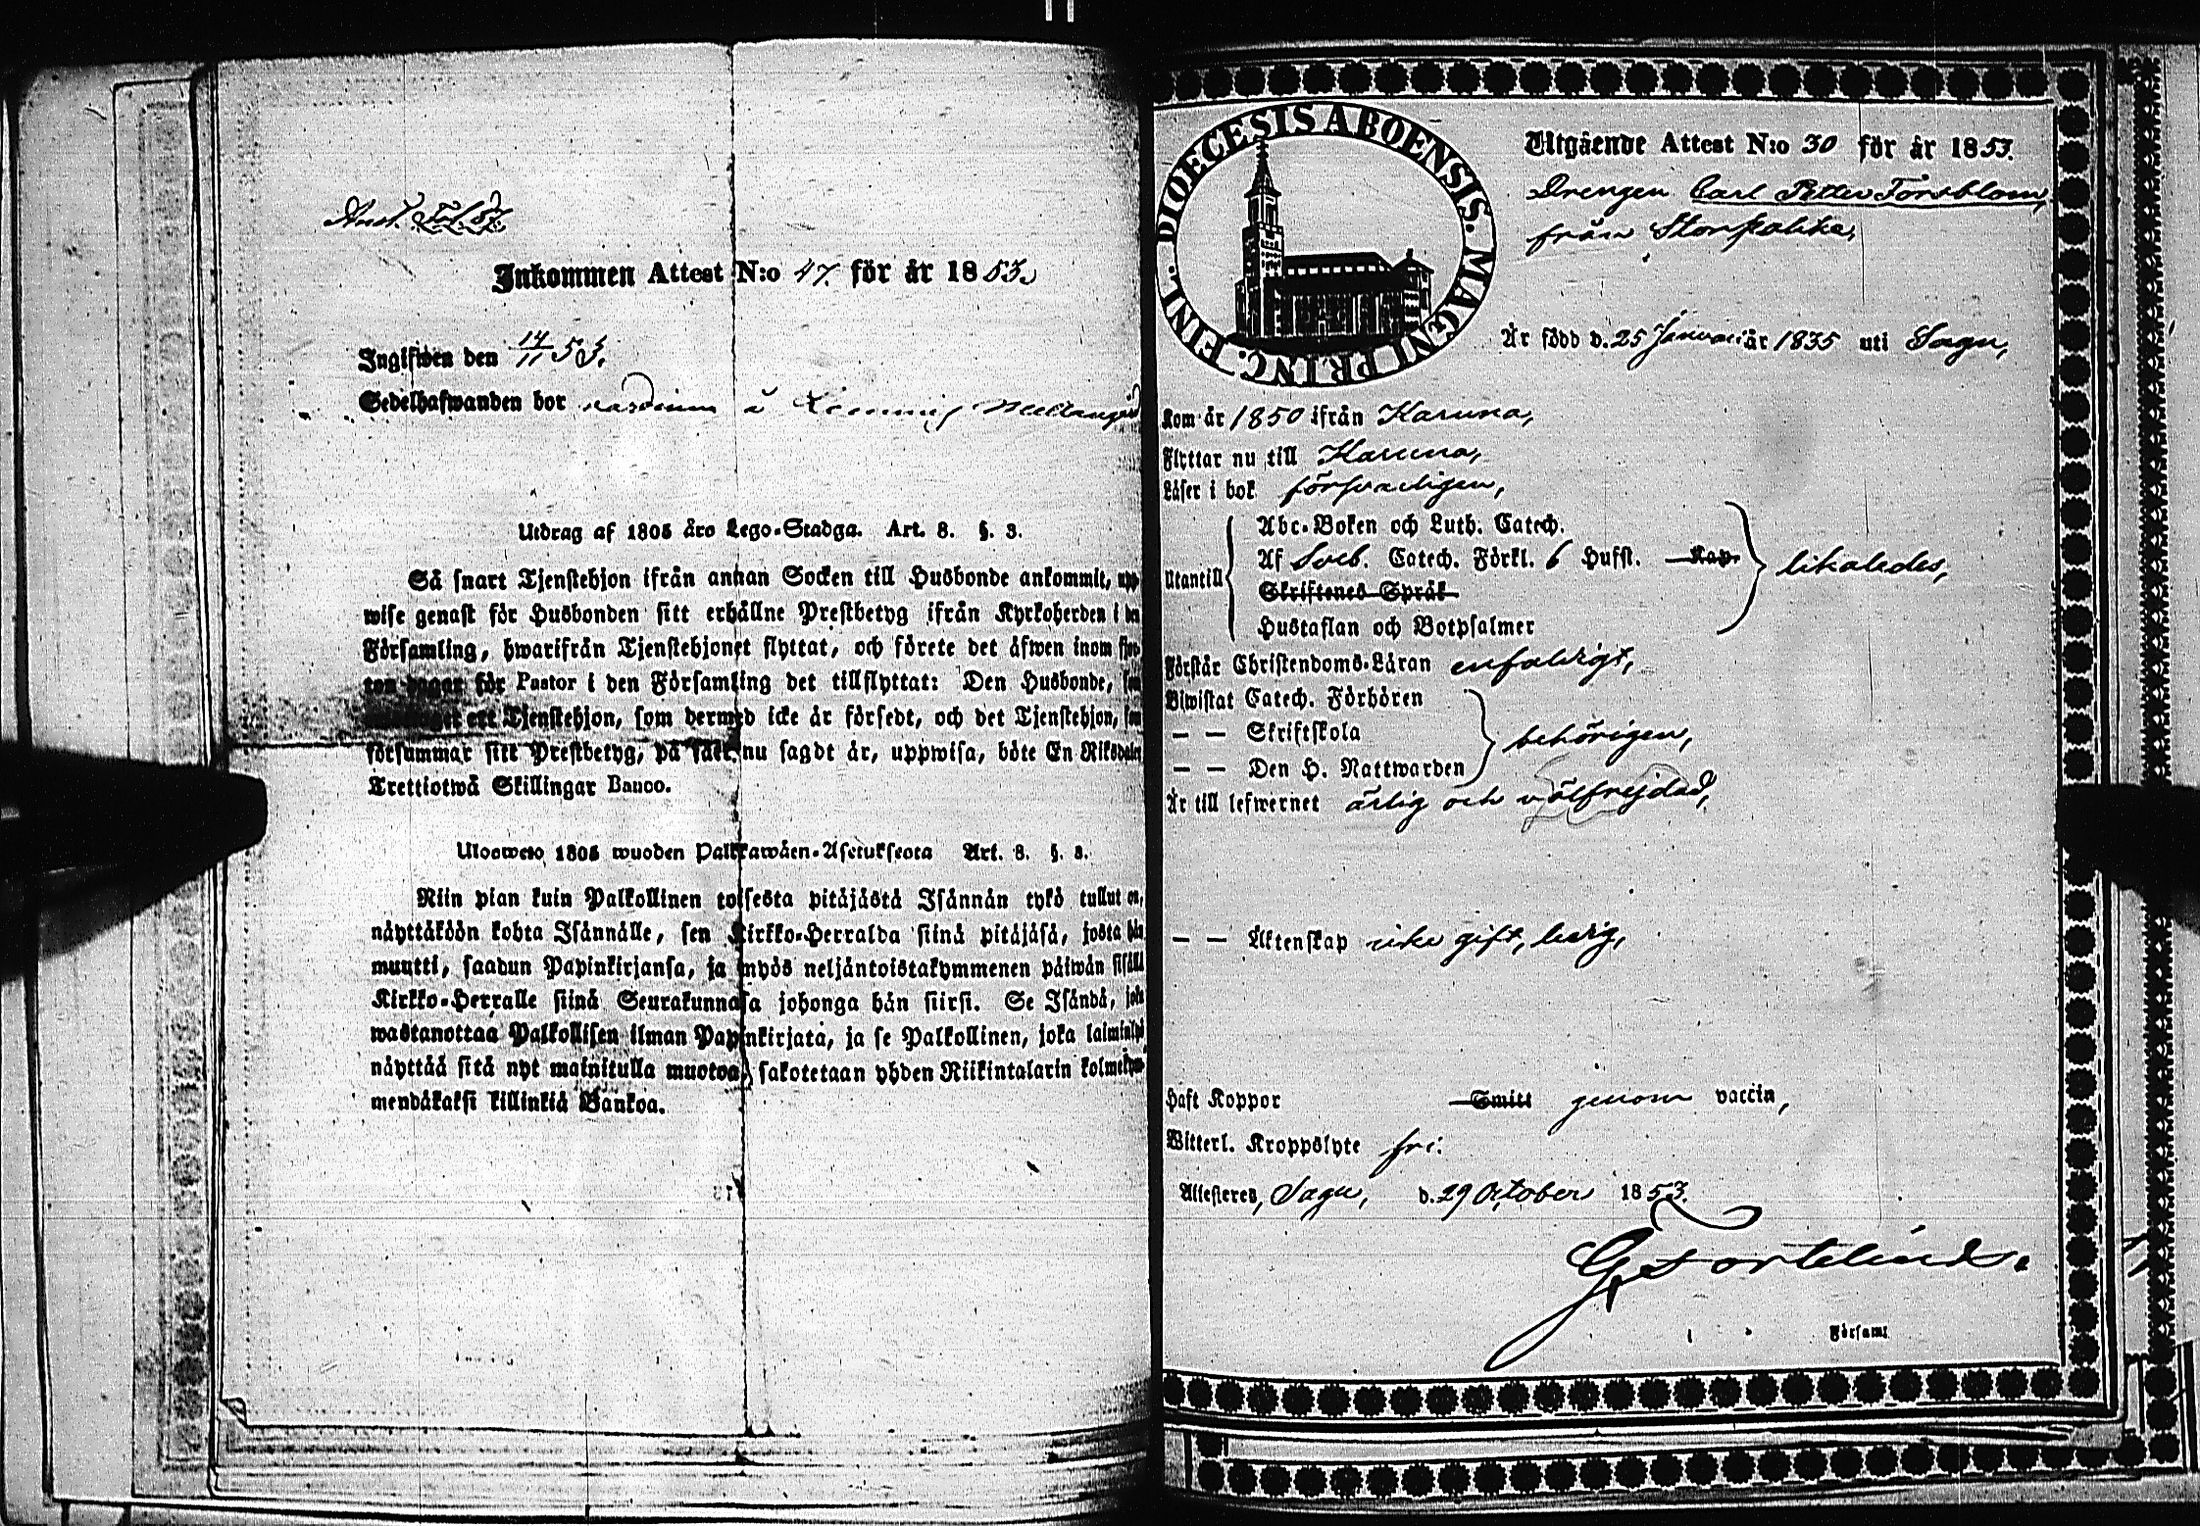 Inkommen Attest N:o 47. för år 1853.
Ingifwen den 14/11 53.
Sedelhafwanden bor
Utdrag af 1805 års Lego-Stadga. Art. 8. §. 3.
Så snart Tjenstehjon ifrån annan Socken till Husbonde ankommit, upp
wise genast för Husbonden sitt erhållne Prestbetyg ifrån Kyrkoherden i den
Församling, hwarifrån Tjenstehjonet flyttat, och förete det äfwen inom fjor-
ton dagar för Pastor i den Församling det tillflyttat: Den Husbonde, som
ett Tjenstehjon, som dermed icke är försedt, och det Tjenstehjon, som
försummar sitt Prestbetyg, på sätt nu sagdt är, uppwisa, böte En Riksdaler
Trettiotwå Skillingar Banco.
Ulosweto 1805 wuoden Palkkawäen-Asetuksesta Art. 8. §. 3.
Niin pian kuin Palkollinen toisesta pitäjästä Isännän tykö tullut on,
näyttäköön kohta Isännälle, sen Kirkko-Herralda siinä pitäjäsä, josta hän
muutti, saadun Papinkirjansa, ja myös neljäntoistakymmenen päiwän sisällä
Kirkko-Herralle siinä Seurakunnasa johonga hän siirsi. Se Isändä, joka
wastanottaa Palkollisen ilman Papinkirjata, ja se Palkollinen, joka laiminlyö
näyttää sitä nyt mainitulla muotoa, sakotetaan yhden Riikintalarin kolmekym-
mendäkaksi killinkiä Bankoa.
DIOECESIS ABOENSIS. MAGNI PRINC. FINL.
Utgående Attest N:o 30 för år 1853.
Drengen Carl Petter Forsblom,
från Storpahka,
Är född d. 25 Januari år 1835 uti Sagu,
Kom år 1850 ifrån Karuna,
Flyttar nu till Karuna,
Läser i bok försvarligen,
Utantill
Abc-Boken och Luth. Catech.
Af Sveb. Catech. Förkl. 6 Hufst. Kap.
Skriftenes Språk
Hustaflan och Botpsalmer
likaledes,
Förstår Christendoms-Läran enfaldigt,
Biwistat Catech. Förhören
— — Skriftskola
— — Den H. Nattwarden
behörigen,
Är till lefwernet ärlig och välfrejdad,
— — Äktenskap icke gift, ledig,
Haft Koppor Smitt genom vaccin,
Witterl. Kroppslyte fri:
Attesteres, Sagu, d. 29 October 1853.
Församl